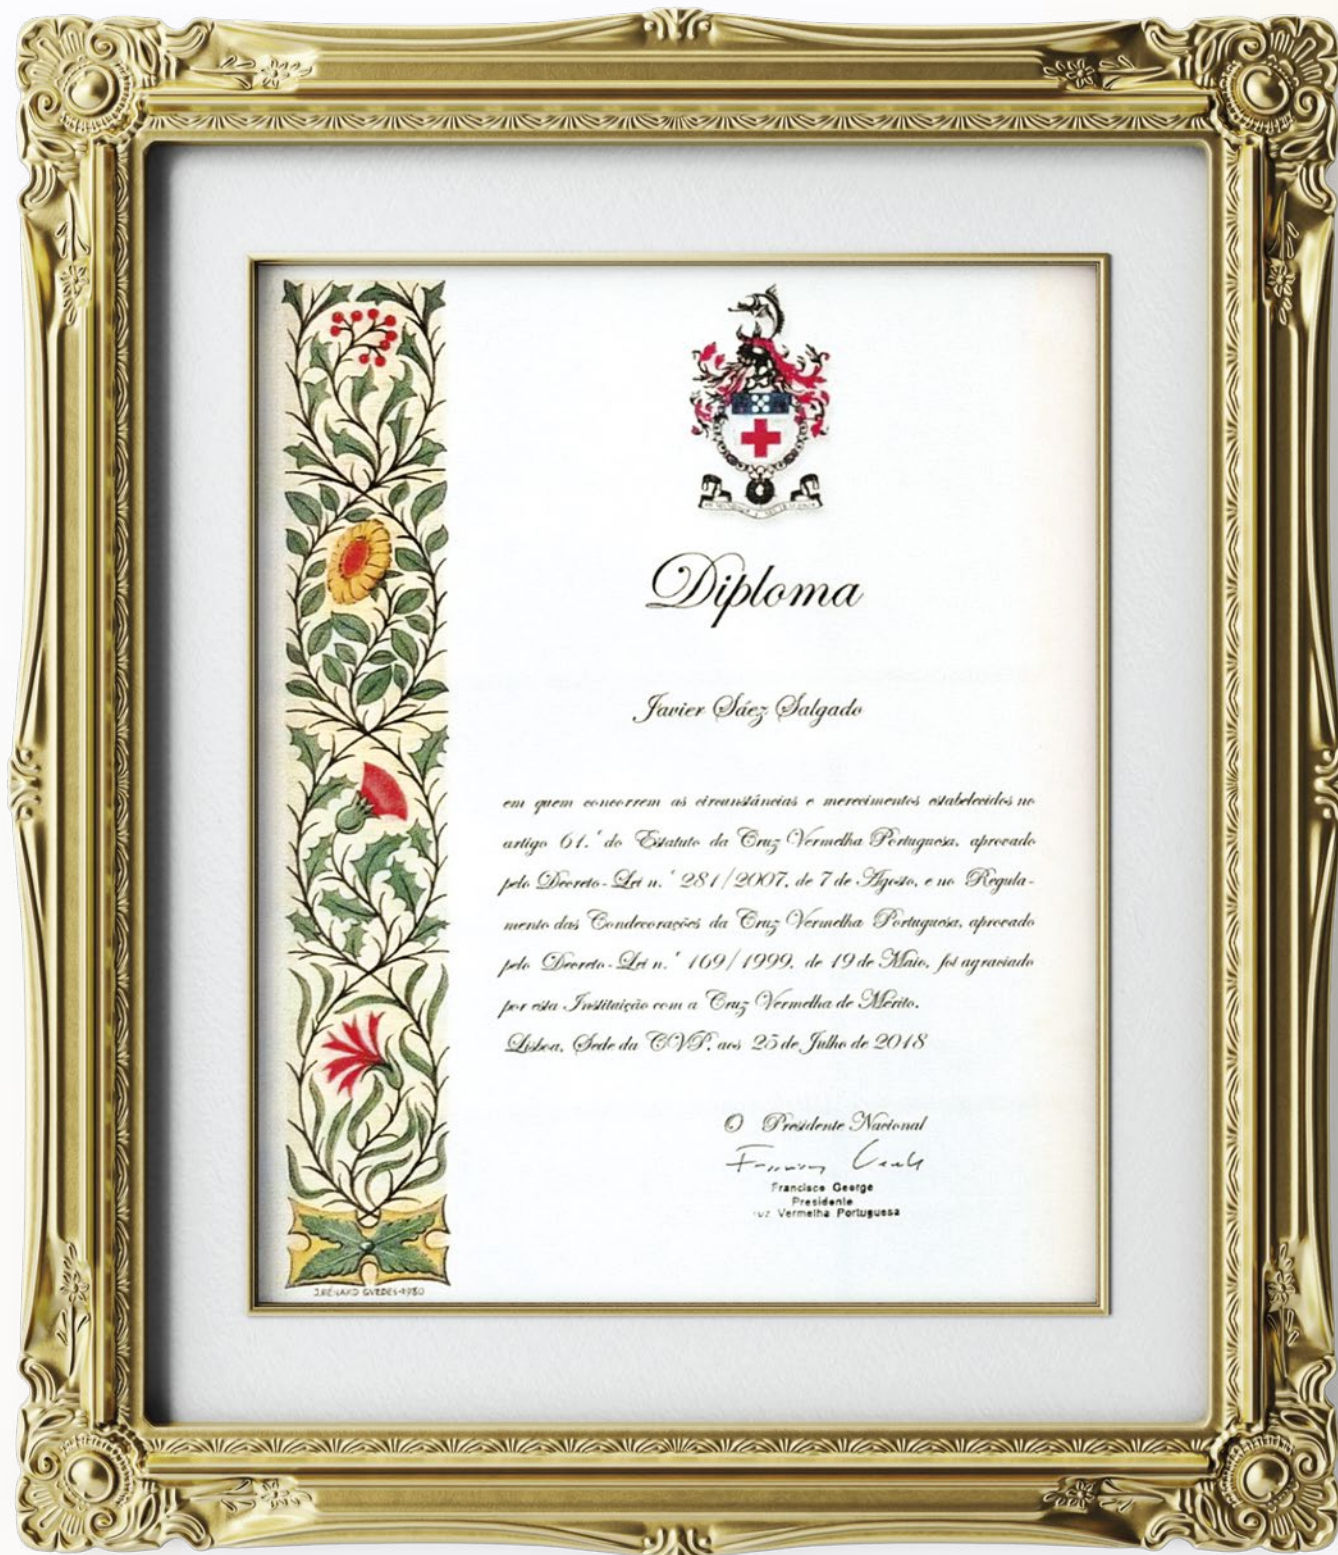 Diploma
Javier Sáez Salgado
em quem concorrem as circunstâncias e merecimentos estabelecidos no
artigo 61.º do Estatuto da Cruz Vermelha Portuguesa, aprovado
pelo Decreto-Lei n.º 281/2007, de 7 de Agosto, e no Regula-
mento das Condecorações da Cruz Vermelha Portuguesa, aprovado
pelo Decreto-Lei n.º 169/1999, de 19 de Maio, foi agraciado
por esta Instituição com a Cruz Vermelha de Mérito.
Lisboa, Sede da CVP, aos 25 de Julho de 2018
O Presidente Nacional
Francisco George
Presidente
uz Vermelha Portuguesa
J. RÉNARD GUEDES-1980